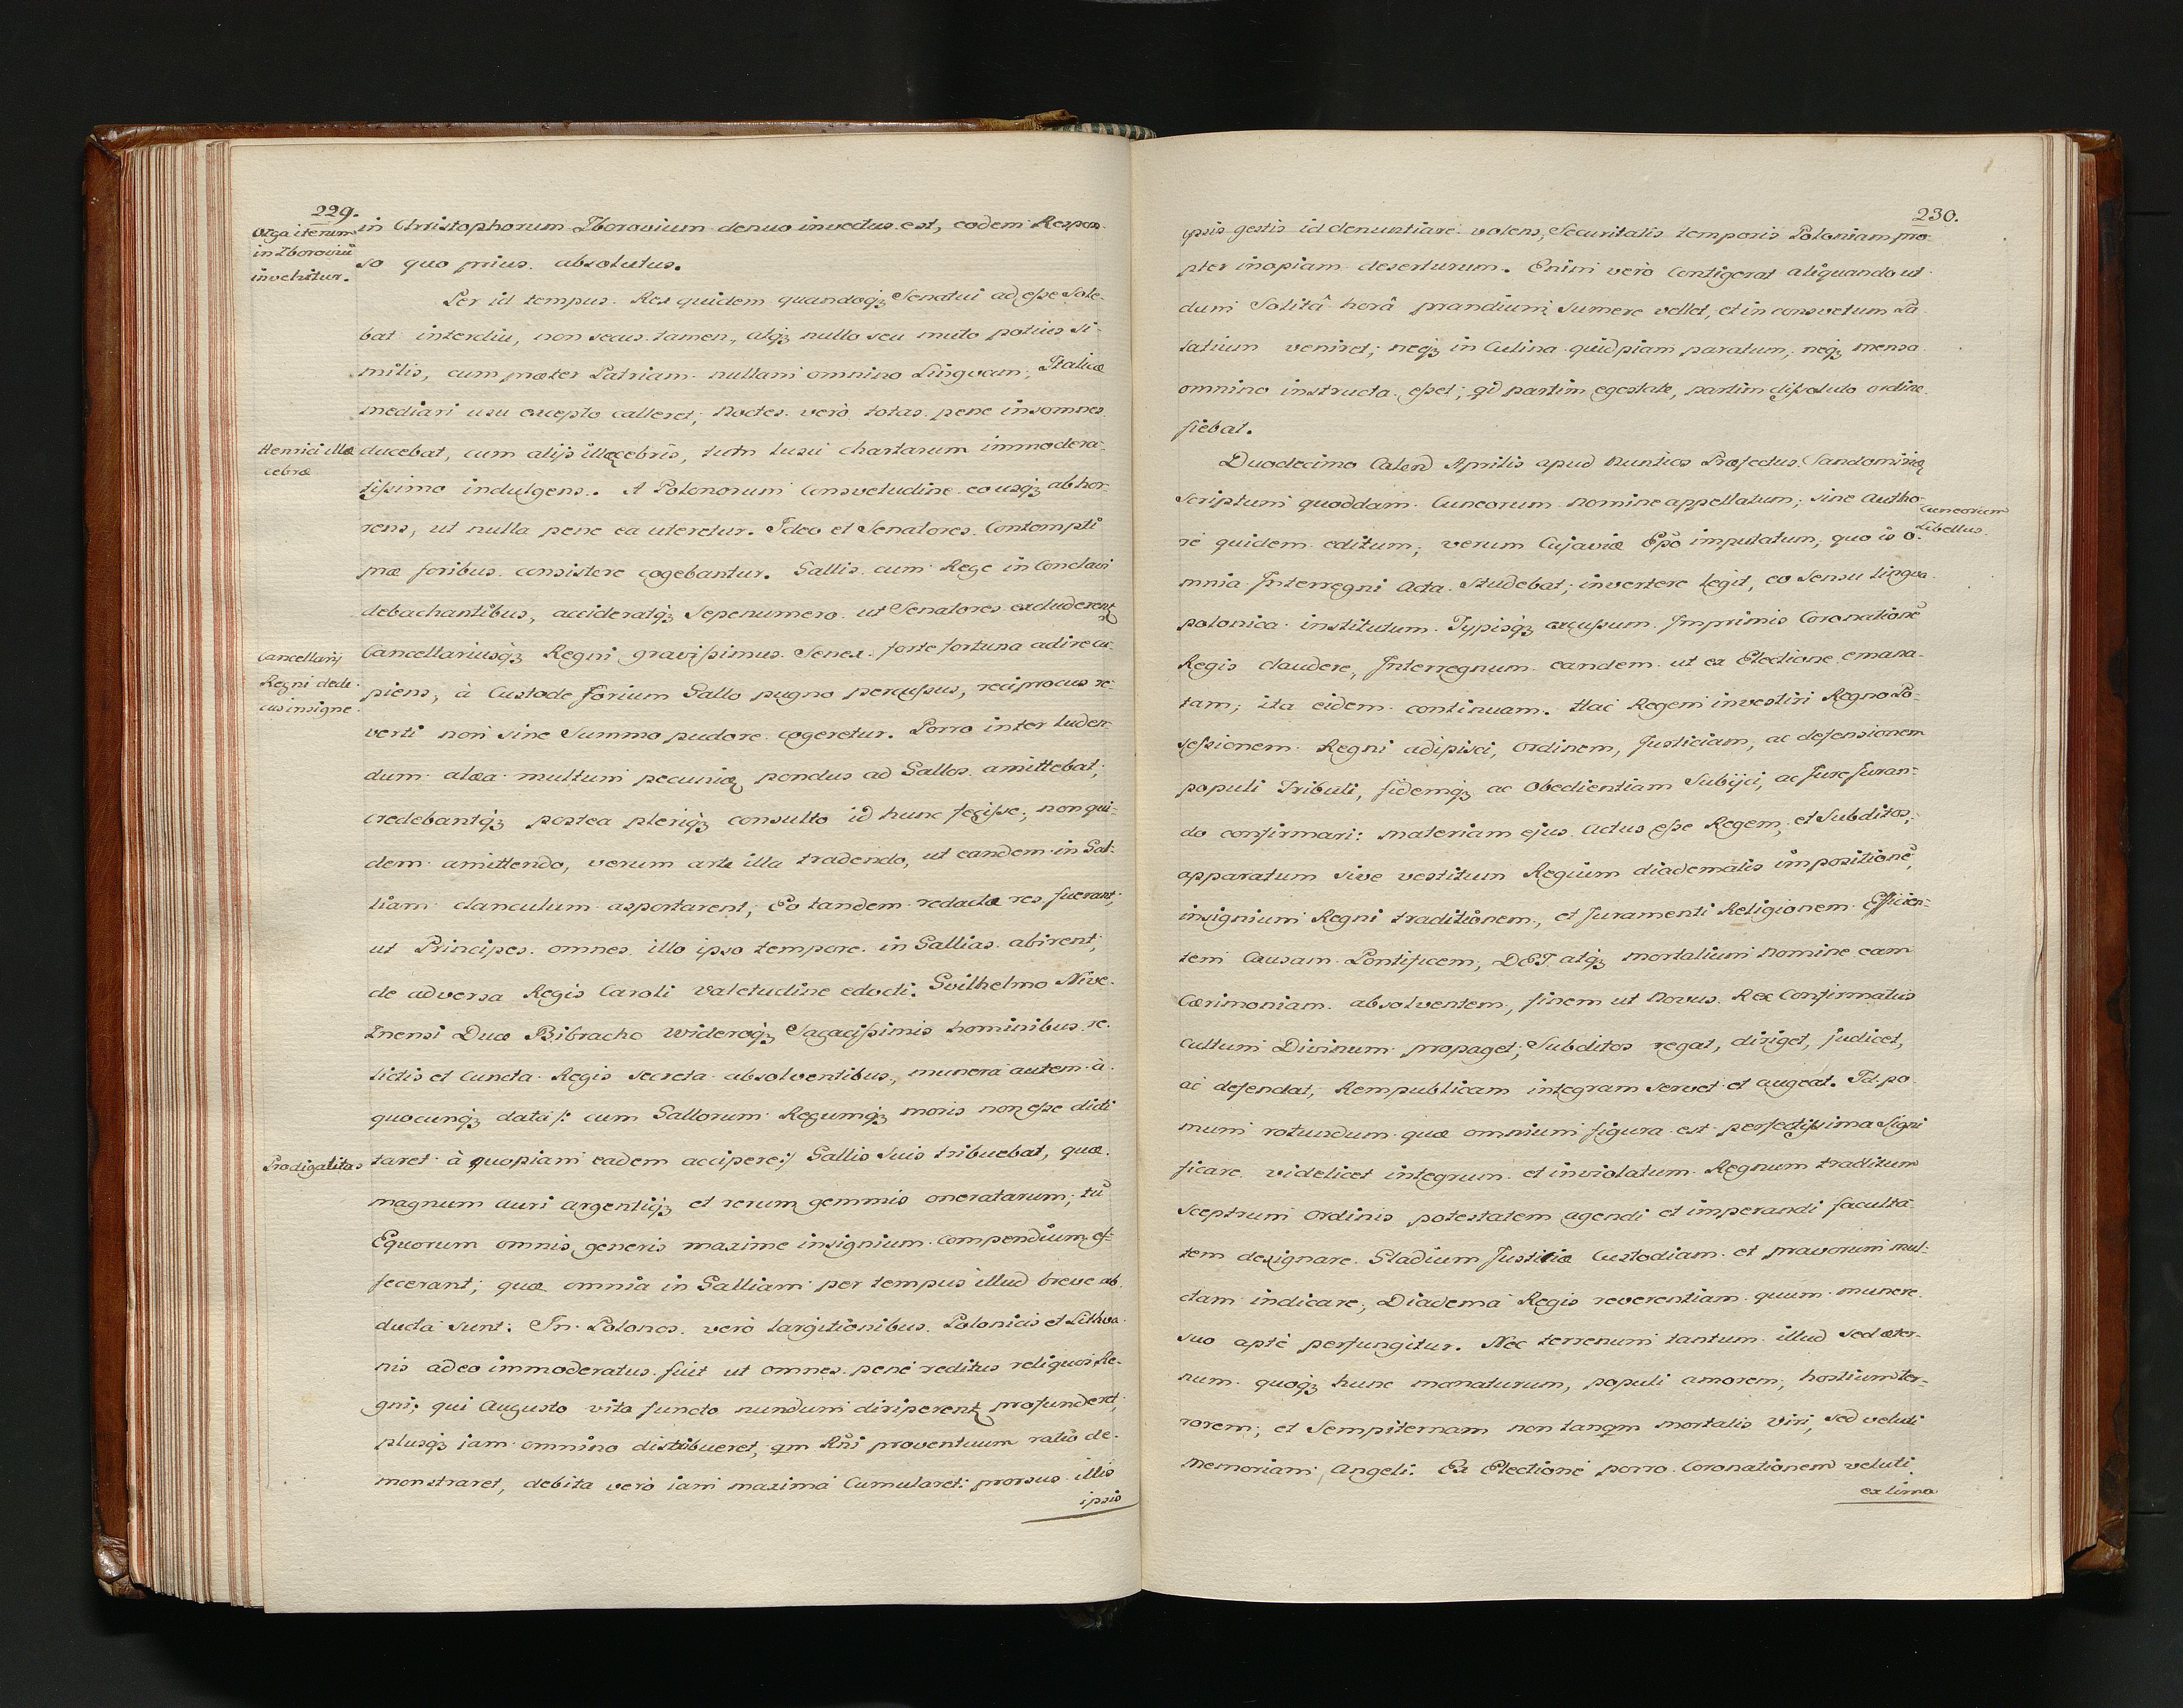 229.
Olga iterum
in Zboroviũ
invehitur.
in Christophorum Zborovium denuo invectus est, eodem Respon-
so quo prius absolutus.
Per id tempus Rex quidem quandoqȝ Senatui adesse Sole-
bat interdiu, non secus tamen, atqȝ nullo seu muto potius si-
milis, cum præter Patriam nullam omnino Lingvam, Italicæ
mediari usu excepto calleret; Noctes verò totas pene insomnes
Henrici ille
cebræ
ducebat, cum alijs illecebris, tum lusui chartarum immodera-
tissimo indulgens. A Polonorum Consvetudine eousqȝ abhor-
rens, ut nulla pene ea uteretur. Ideo et Senatores Contempti
præ foribus consistere cogebantur. Gallis cum Rege in Conclavi
debachantibus, accideratqȝ Sepenumero ut Senatores excluderent
Cancellarij
Regni dede-
cus insigne.
Cancellariusqȝ Regni gravissimus Senex forte fortuna adire cu-
piens, à Custode forium Gallo pugno percussus, reciprocus re-
verti non sine Summo pudore cogeretur. Porro inter luden-
dum alea multum pecuniæ pondus ad Gallos amittebat;
credebantqȝ postea pleriqȝ consulto id hunc fecisse; non qui-
dem amittendo, verum arte illa tradendo, ut eandem in Gal-
liam clanculum asportarent; Eo tandem redactæ res fuerant;
ut Principes omnes illo ipso tempore in Gallias abirent;
de adversa Regis Caroli valetudine edocti. Gvilhelmo Nive-
rnensi Duce Bibracho Wideroqȝ Sagacissimis hominibus re-
lictis et Cuncta Regis secreta absolventibus, munera autem à
quocunqȝ data /: cum Gallorum Regumqȝ moris non esse dicti
Prodigalitas
taret à quopiam eadem accipere:/ Gallis suis tribuebat, quæ
magnum auri argentiqȝ et rerum gemmis oneratarum; tũ
Equorum omnis generis maxime insignium compendium ef-
fecerant; quæ omnia in Galliam per tempus illud breve ab-
ducta sunt. In Polonos verò largitionibus Polonicis et Lithva-
nis adeo immoderatus fuit ut omnes penè reditus reliquos Re-
gni; qui Augusto vita functo nundum diriperent profunderet,
plusqȝ iam omnino distribueret, qm Rñi proventuum ratio de-
monstraret, debita verò iam maxima Cumularet: prorsus illis
ipsis
230.
ipsis gestis id denuntiare volens, Securitatis temporis Poloniam pro-
pter inopiam deserturum. Enim verò Contigerat aliquando ut
dum Solitâ horâ prandium sumere vellet, et in consvetum Pa-
latium veniret; neqȝ in Culina quidpiam paratum, neqȝ mensa
omnino instructa esset; qd partim egestate, partim dissoluto ordine
fiebat.
Duodecimo Calend Aprilis apud Nuntios Præfectus Sandomiriæ
Scriptum quoddam Cuneorum nomine appellatum; sine Autho-
Cuneorum
Libellus.
re quidem editum; verum Cujaviæ Epõ imputatum, quo is o-
mnia Interregni Acta Studebat; invertere legit, eo sensu lingva
polonica institutum. Typisqȝ excussum. Imprimis Coronationẽ
Regis claudere, Interregnum eandem ut ex Electione emana-
tam; ita eidem continuam. Hac Regem investiri Regno Po-
sessionem Regni adipisci, ordinem, Justiciam, ac defensionem
populi tribuli, fidemqȝ ac Obedientiam Subijci, ac Jure Juran-
do confirmari: materiam ejus actus esse Regem, et Subditos,
apparatum sive vestitum Regium diadematis impositionẽ,
insignium Regni traditionem, et Juramenti Religionem Efficien-
tem Causam Pontificem, DEI atqȝ mortalium nomine eam
Cærimoniam absolventem, finem ut novus Rex Confirmatus
cultum Divinum propaget; Subditos regat, diriget, judicet,
ac defendat, Rempublicam integram servet et augeat. Id po-
mum rotundum quæ omnium figura est perfectissima Signi
ficare videlicet integrum et inviolatum Regnum traditum
Sceptrum ordinis potestatem agendi et imperandi faculta-
tem designare. Gladium Justitiæ Custodiam et pravorum mul-
ctam indicare, Diadema Regis reverentiam quum munere
suo aptè perfungitur. Nec terrenum tantum illud sed æter-
num quoqȝ hunc manaturum, populi amorem, hostium ter-
rorem; et Sempiternam non tanqm mortalis viri, sed veluti
memoriam Angeli. Ex Electione porro Coronationem veluti
ex limo